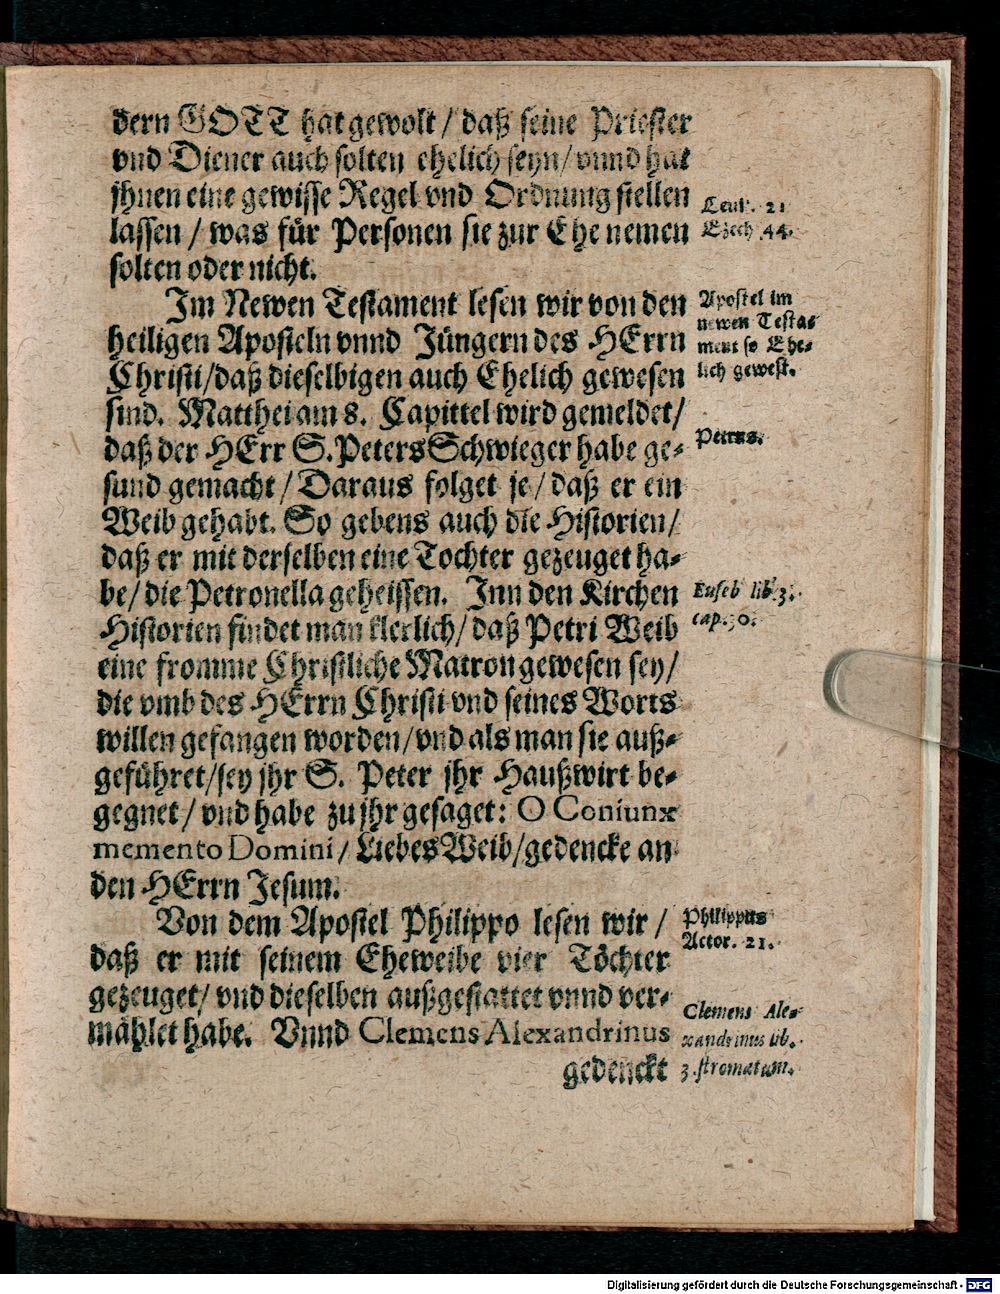 dern GOTT hat gewolt / daß seine Priester
vnd Diener auch solten ehelich seyn / vnnd hat
jhnen eine gewisse Regel vnd Ordnung stellen
lassen / was für Personen sie zur Ehe nemen
solten oder nicht.
Leuit. 21
Ezech. 44.
Im Newen Testament lesen wir von den
heiligen Aposteln vnnd Jüngern des HErrn
Christi / daß dieselbigen auch Ehelich gewesen
sind. Matthei am 8. Capittel wird gemeldet /
daß der HErr S. Peters Schwieger habe ge-
sund gemacht / Daraus folget je / daß er ein
Weib gehabt. So gebens auch die Historien /
daß er mit derselben eine Tochter gezeuget ha-
be / die Petronella geheissen. Inn den Kirchen
Historien findet man klerlich / daß Petri Weib
eine fromme Christliche Matron gewesen sey /
die vmb des HErrn Christi vnd seines Worts
willen gefangen worden / vnd als man sie auß-
geführet / sey jhr S. Peter jhr Haußwirt be-
gegnet / vnd habe zu jhr gesaget: O Coniunx
memento Domini / Liebes Weib / gedencke an
den HErrn Jesum.
Apostel im
newen Testa-
ment so Ehe-
lich gewest.
Petrus.
Euseb lib. 3.
cap. 30.
Von dem Apostel Philippo lesen wir /
daß er mit seinem Eheweibe vier Töchter
gezeuget / vnd dieselben außgestattet vnnd ver-
mählet habe. Vnnd Clemens Alexandrinus
gedenckt
Philippus
Actor. 21.
Clemens Ale-
xandrinus lib.
3. stromatum.
Digitalisierung gefördert durch die Deutsche Forschungsgemeinschaft - DFG